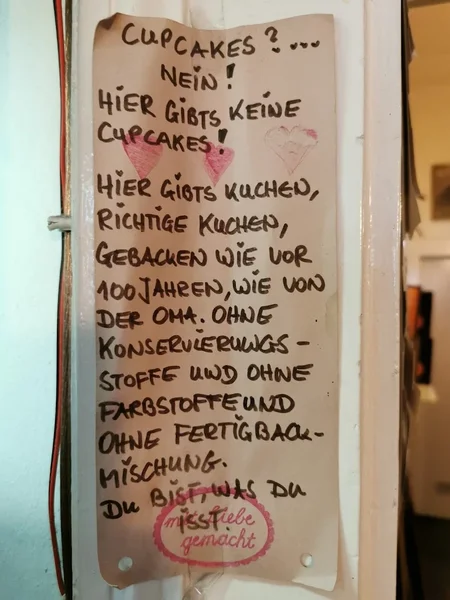 CUPCAKES?...
NEIN!
HIER GIBTS KEINE
CUPCAKES!
HIER GIBTS KUCHEN,
RICHTIGE KUCHEN,
GEBACKEN WIE VOR
100 JAHREN, WIE VON
DER OMA. OHNE
KONSERVIERUNGS-
STOFFE UND OHNE
FARBSTOFFE UND
OHNE FERTIGBACK-
MISCHUNG.
DU BIST, WAS DU
ISST.
mit Liebe
gemacht